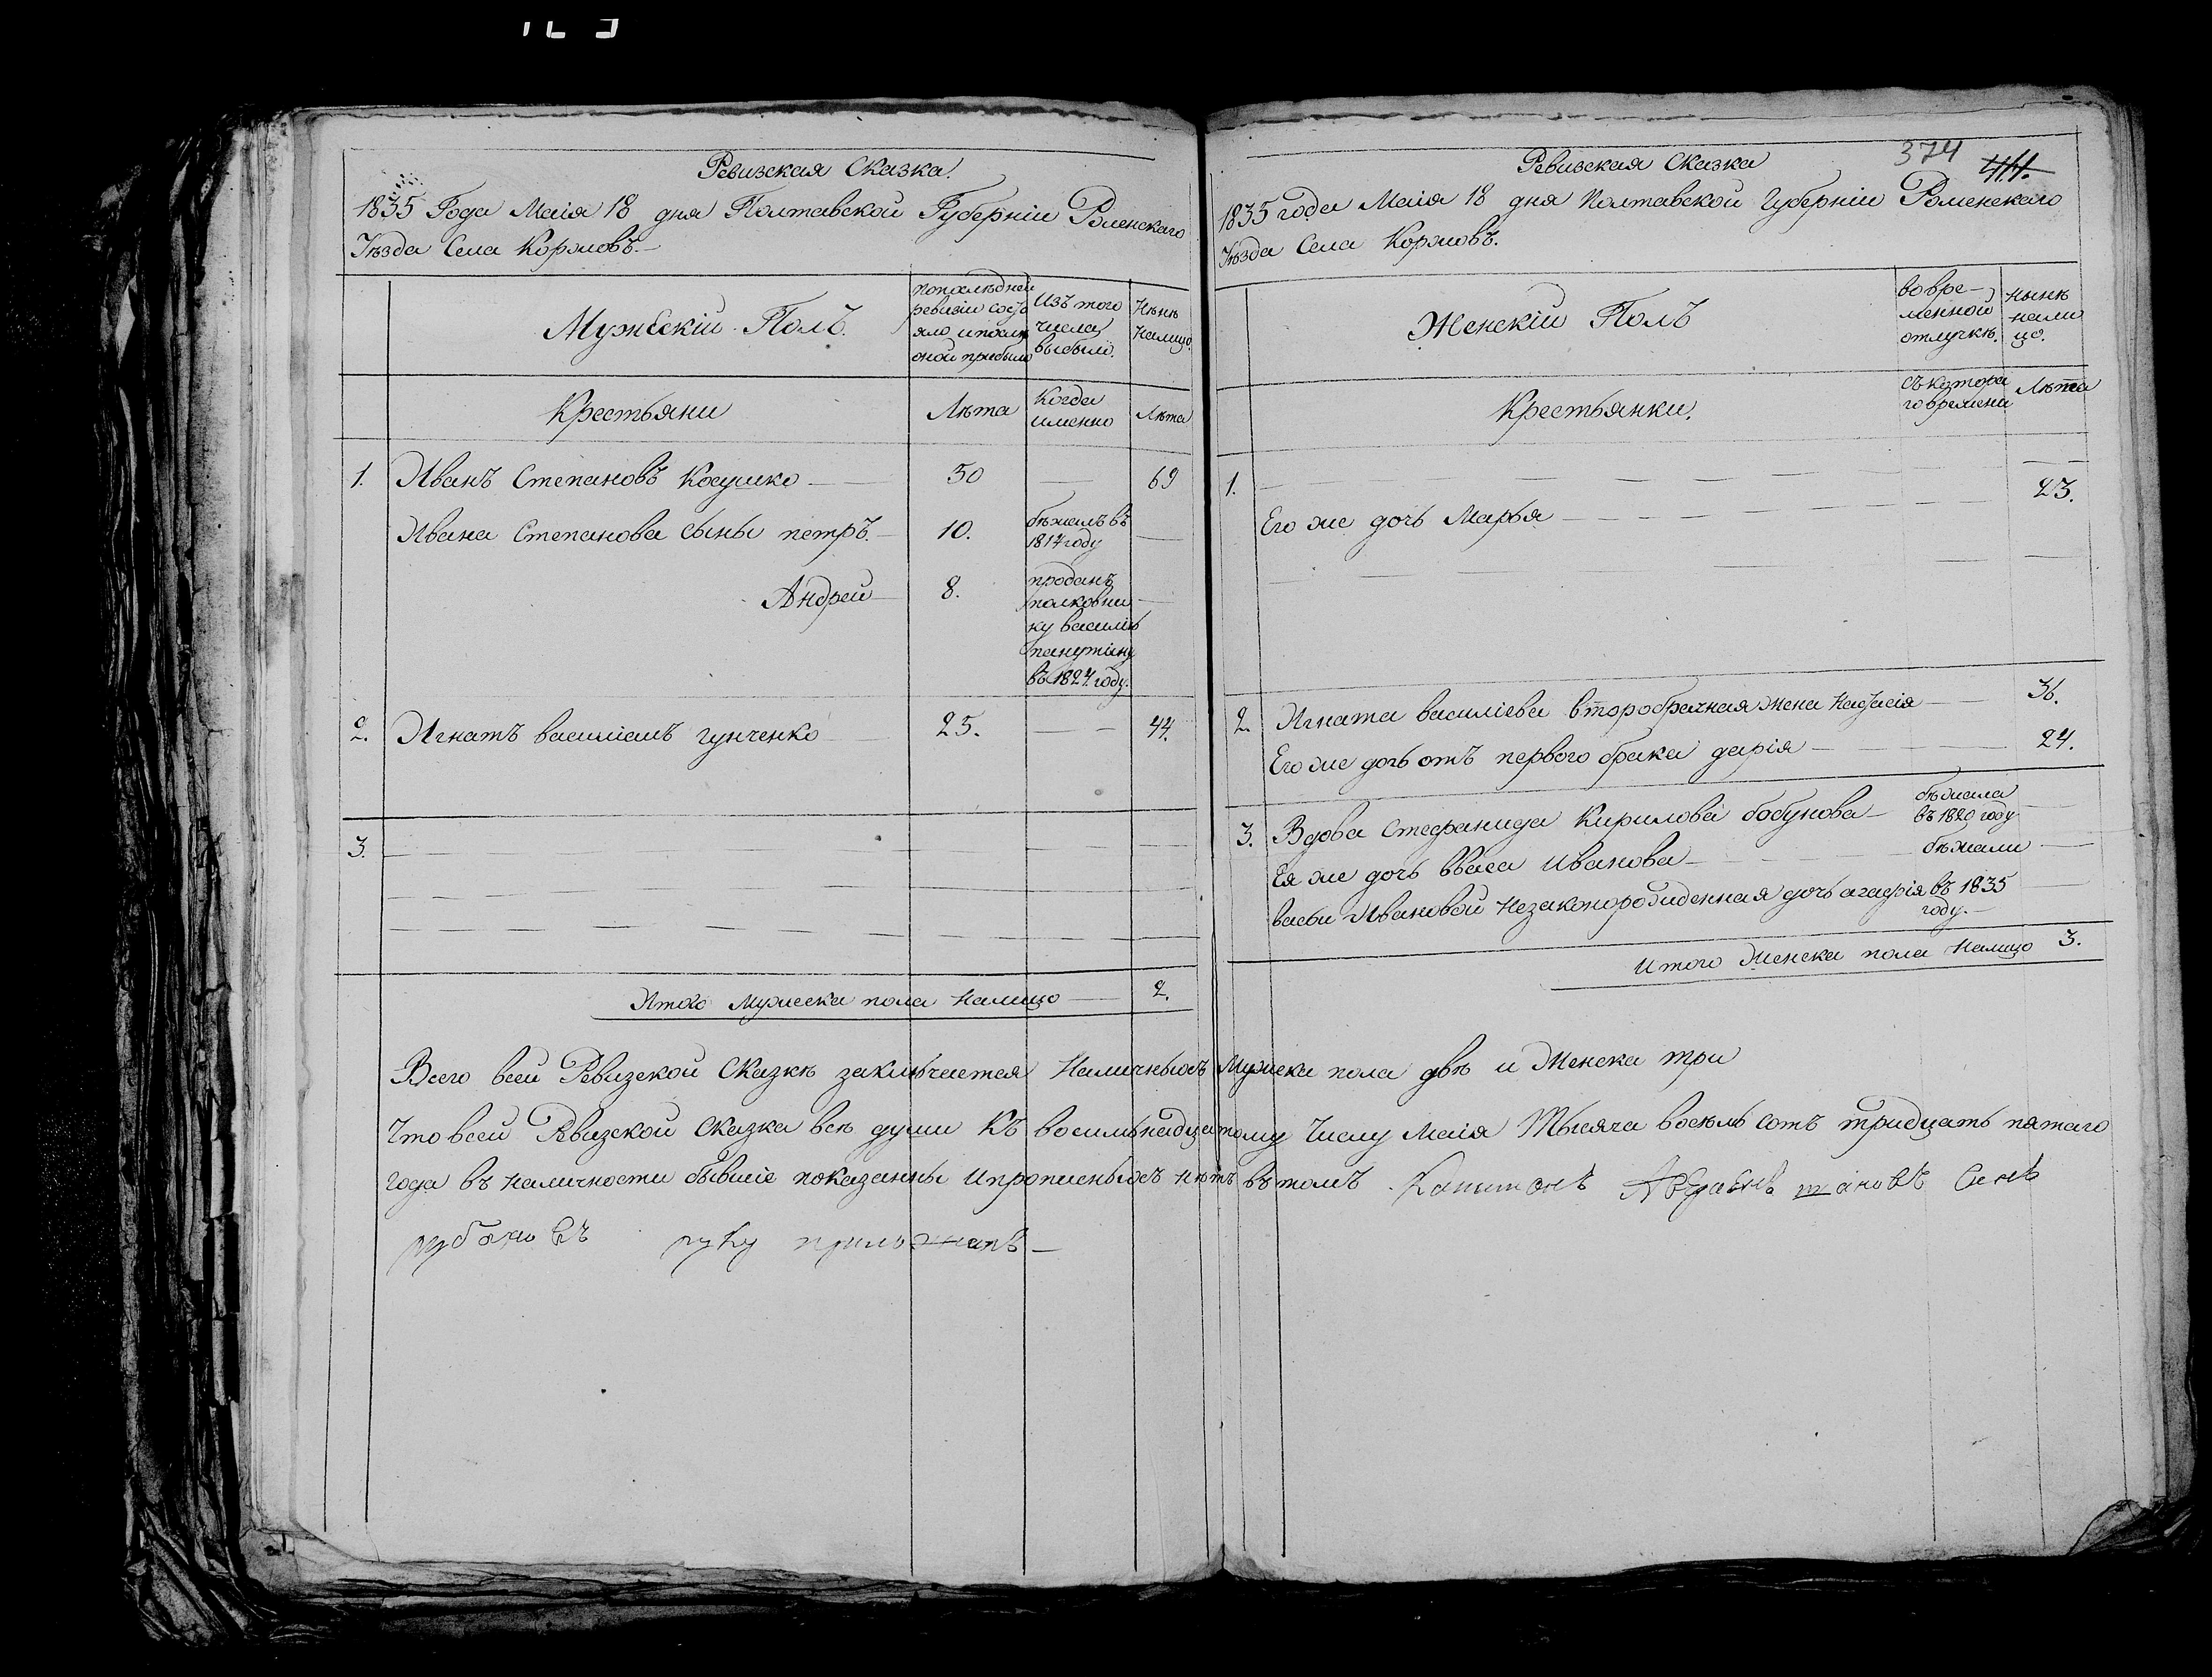 Ревизская Сказка.
1835 Года Маія 18 дня Полтавской Губерніи Роменскаго
Уѣзда Села Коржовъ.
Мужескій Полъ.
попослѣдней
ревизіи состо
яло ипослѣ
оной прибыло
Изъ того
числа
выбыло.
Нынѣ
Налицо.
Крестьяни
Лѣта
Когда
именно
Лѣта
1. Иванъ Степановъ Косушко 50 69
Ивана Степанова сыны петръ. 10. бѣжалъ въ
1817 году
Андрей 8. проданъ
полковни
ку василію
панутіну
въ 1824. году.
2. Игнатъ василіевъ гунченко 25. 44.
3.
Итого мужеска пола налицо 2.
Ревизская Сказка
374 411.
1835 года Маія 18 дня Полтавской Губерніи Роменскаго
Уѣзда Села Коржовъ.
Женскій Полъ
вовре-
менной
отлучкѣ.
нынѣ
нали
цо.
Крестьянки.
съкотора
го времени
Лѣта
1.
Его же дочь Марья 23.
2. Игната василіева второбрачная жена 36.
Его же дочь отъ первого брака дарія 24.
3. Вдова Стефанида Кирилова бобунова бѣжала
въ 1820 году
Ея же дочь Иванова бѣжали
Ивановой незаконорожденная дочь агафія въ 1835
году.
Итого Женска пола налицо 3.
Всего всей Ревизской Сказкѣ заключается Наличныхъ Мужска пола двѣ и Женска три
Что всей Ревизской Сказка всѣ души Къ восимьнадцатому Числу Маія Тысяча восемь сотъ тридцать пятаго
года въ наличности бывшіе показанны ипрописныхъ нѣтъ въ томъ Капитонъ Сынъ
руку приложилъ